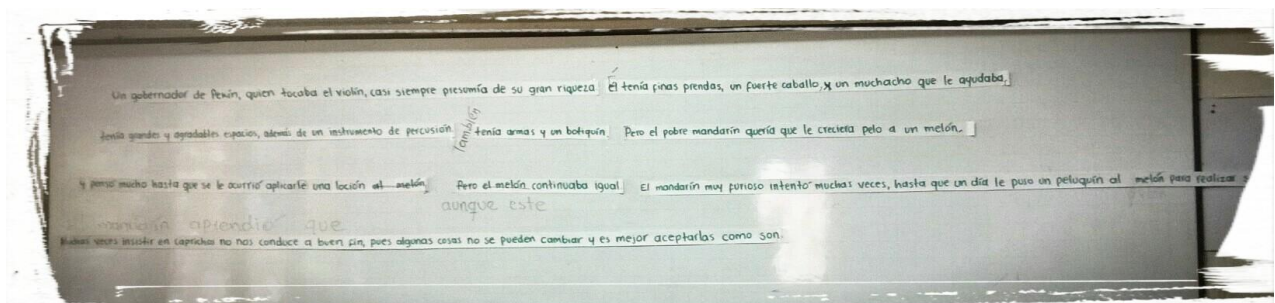 Un gobernador de Pekín, quien tocaba el violín, casi siempre presumía de su gran riqueza él tenía finas prendas, un fuerte caballo, y un muchacho que le ayudaba,
tenía grandes y agradables espacios, además de un instrumento de percusión también tenía armas y un botiquín Pero el pobre mandarín quería que le creciera pelo a un melón.
Y pensó mucho hasta que se le ocurrió aplicarle una loción al melón, Pero el melón continuaba igual El mandarín muy furioso intentó muchas veces, hasta que un día le puso un peluquín al melón para realizar
aunque este
aprendió que
Muchas veces insistir en caprichos no nos conduce a buen fin, pues algunas cosas no se pueden cambiar y es mejor aceptarlas como son.